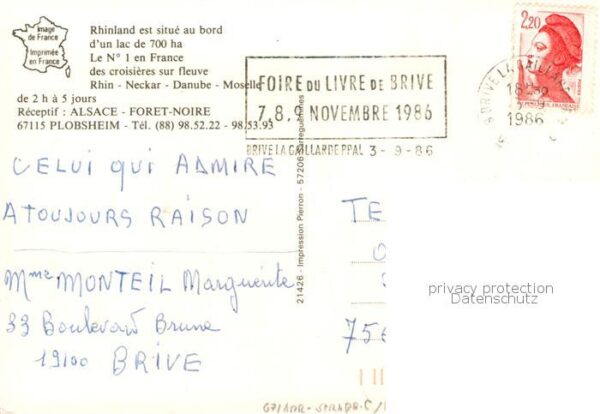 Image
de France
Imprimée
en France
Rhinland est situé au bord
d'un lac de 700 ha
Le N° 1 en France
des croisières sur fleuve
Rhin - Neckar - Danube - Moselle
de 2 h à 5 jours
Réceptif : ALSACE - FORET-NOIRE
67115 PLOBSHEIM - Tél. (88) 98.52.22 - 98.53.93
FOIRE DU LIVRE DE BRIVE
7.8.9 NOVEMBRE 1986
BRIVE LA GAILLARDE PPAL 3-9-86
2,20
BRIVE LA GAILLARDE
1986
CELUI QUI ADMIRE
A TOUJOURS RAISON
Mme MONTEIL Marguerite
33 Boulevard Brune
19100 BRIVE
21426 - Impression Pierron - 57206 Sarreguemines
TE
75
privacy protection
Datenschutz